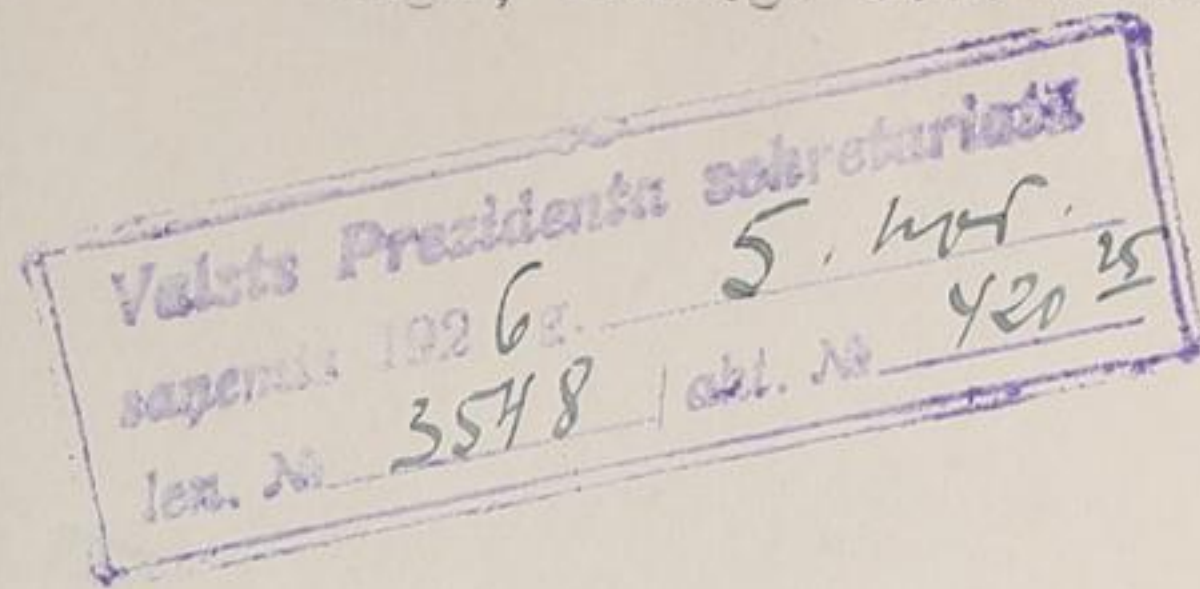 Valsts Prezidenta sekretariatā
saņemts 1926 g. 5. nov.
Ien. № 3548 | akt. № 420 25